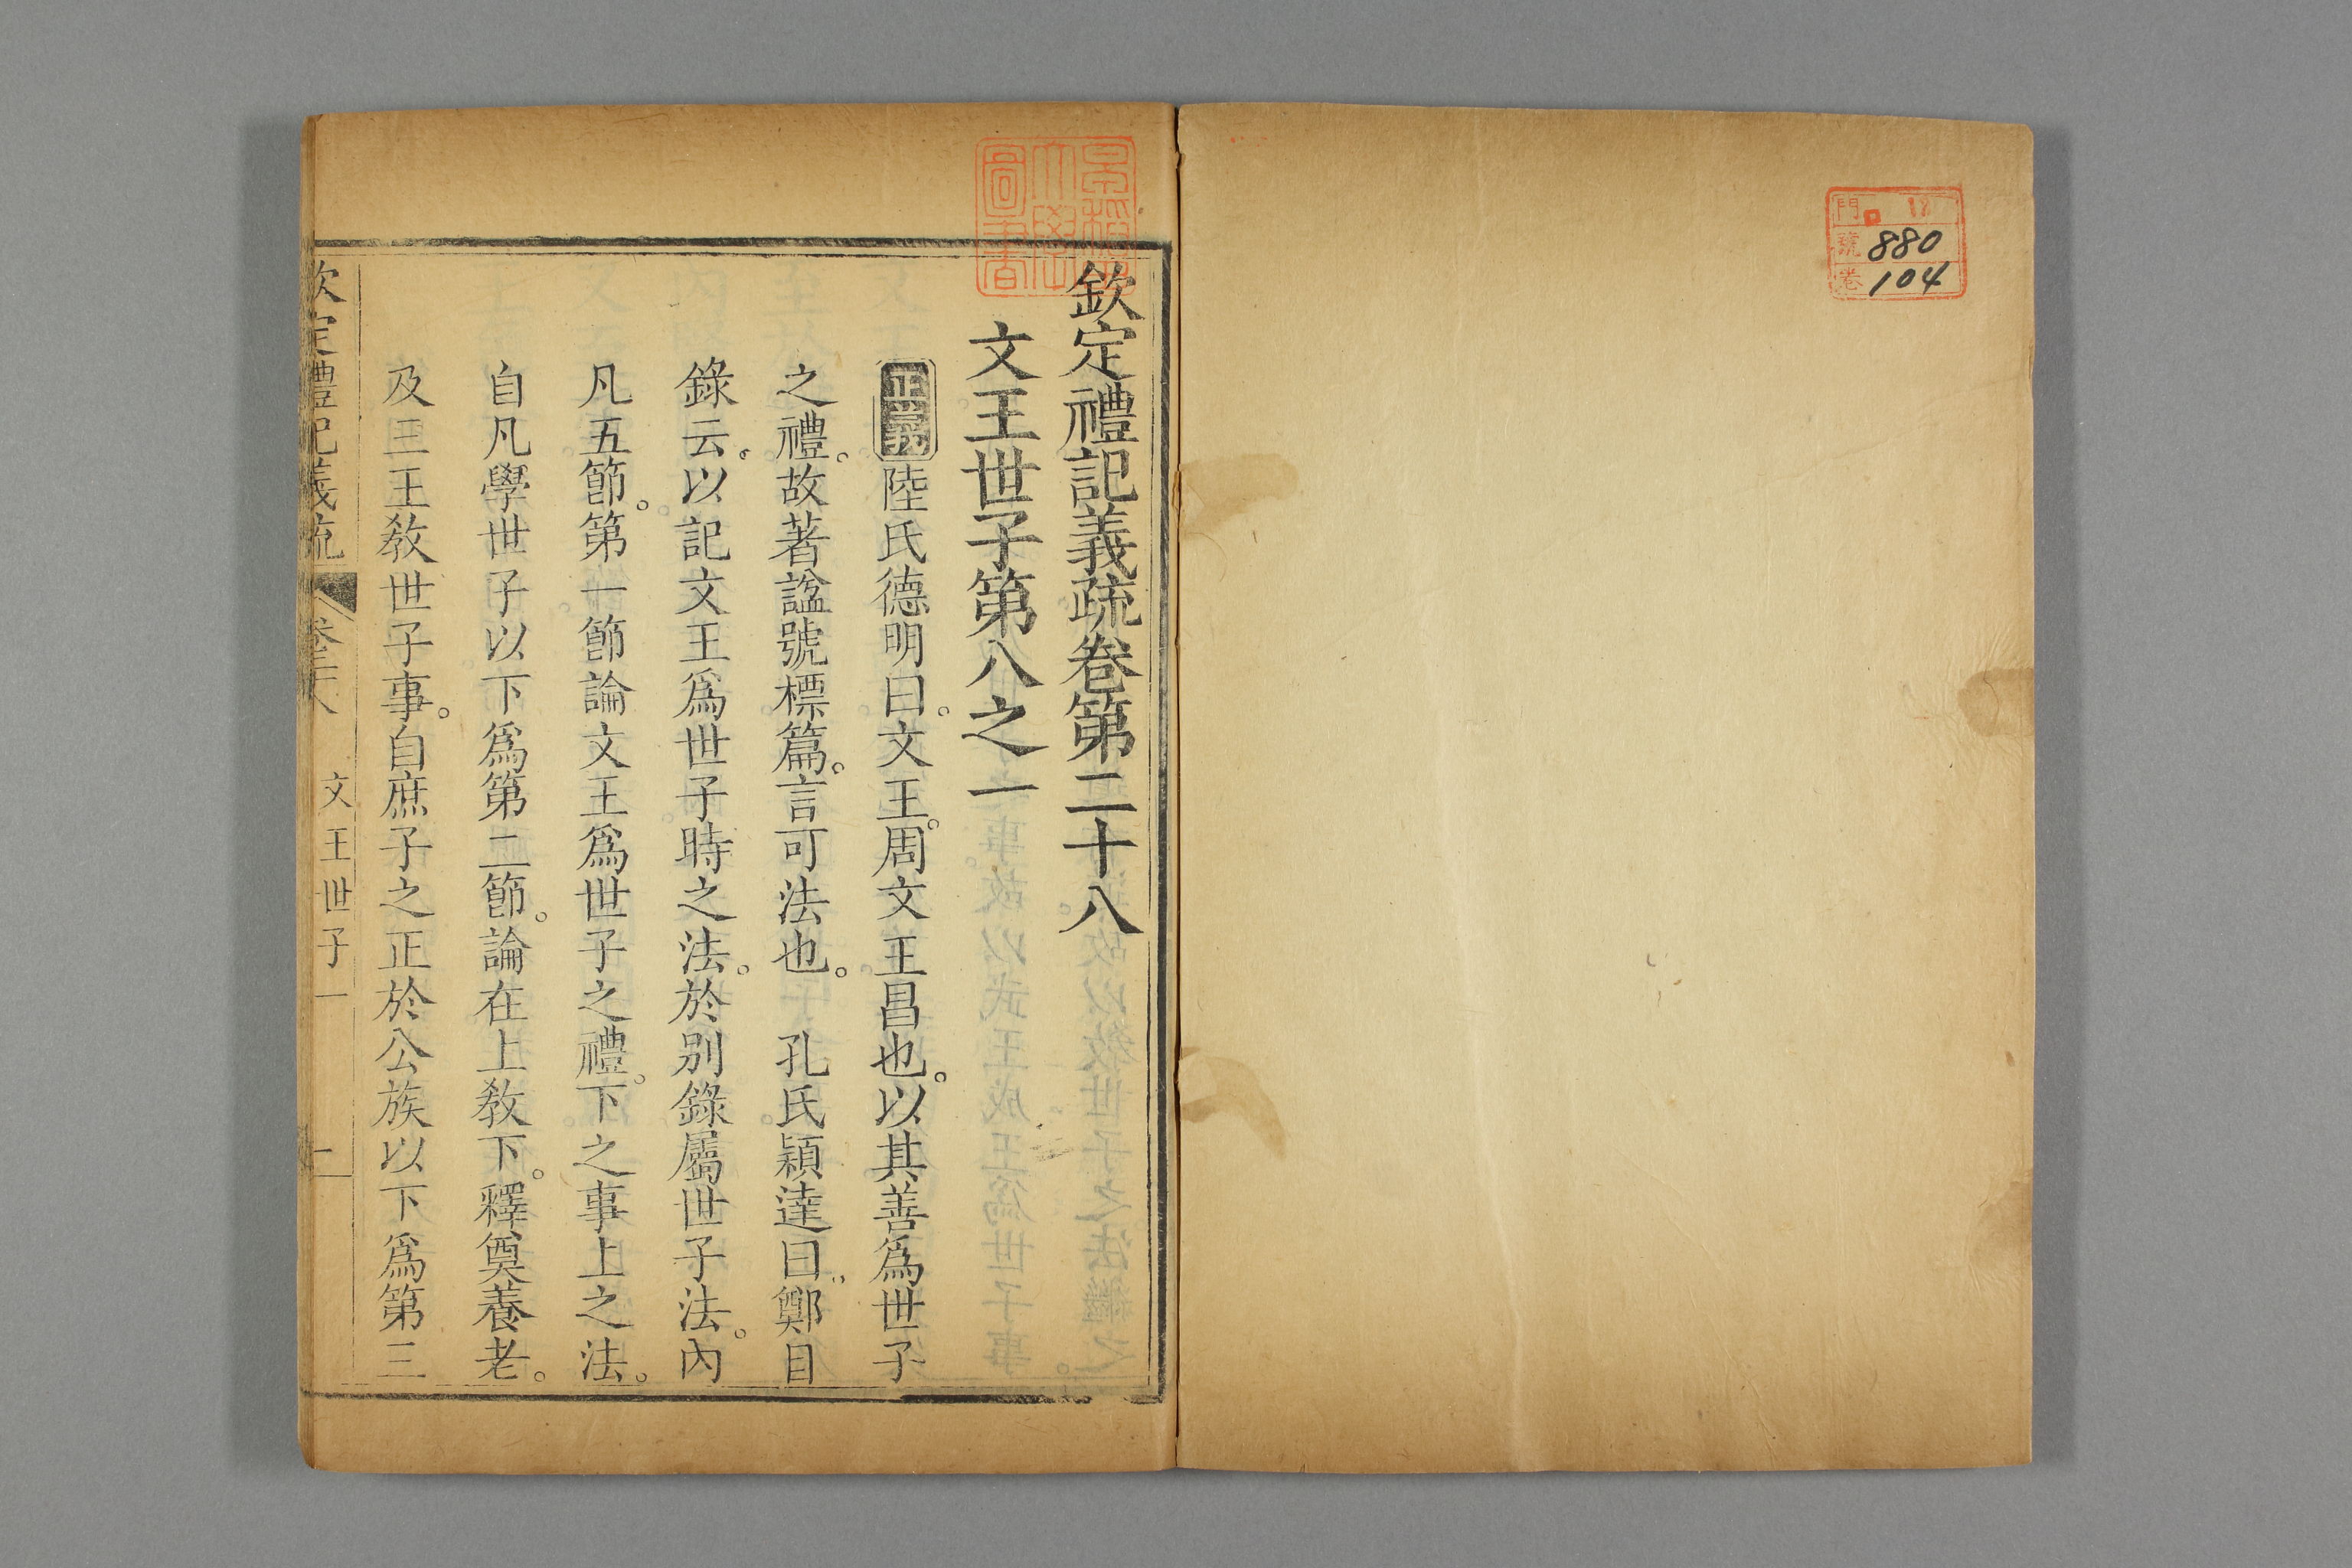 門 18
號 880
卷 104
欽定禮記義疏卷第二十八
文王世子第八之一
正義陸氏德明曰。文王。周文王昌也。以其善爲世子
之禮。故著諡號標篇。言可法也。 孔氏穎達曰。鄭目
錄云。以記文王爲世子時之法。於別錄屬世子法。內
凡五節。第一節論文王爲世子之禮。下之事上之法。
自凡學世子以下爲第二節。論在上教下。釋奠養老。
及三王教世子事。自庶子之正於公族以下爲第三
欽定禮記義疏 卷二十八 文王世子一 一